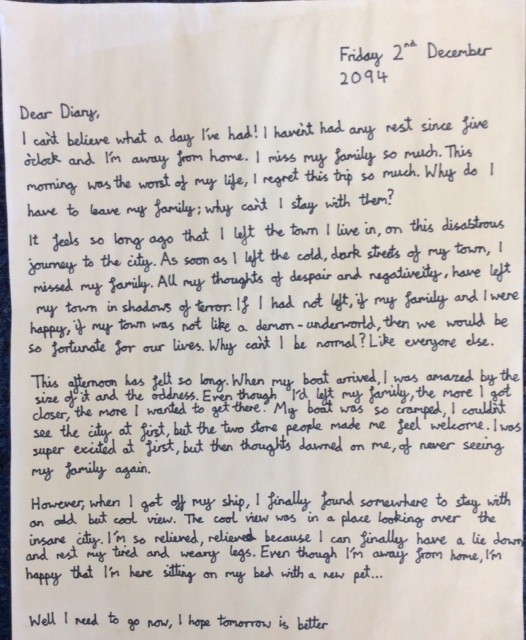 Friday 2nd December
2094
Dear Diary,
I can't believe what a day I've had! I haven't had any rest since five
o'clock and I'm away from home. I miss my family so much. This
morning was the worst of my life, I regret this trip so much. Why do I
have to leave my family; why can't I stay with them?
It feels so long ago that I left the town I live in, on this disastrous
journey to the city. As soon as I left the cold, dark streets of my town, I
missed my family. All my thoughts of despair and negativeity, have left
my town in shadows of terror. If I had not left, if my family and I were
happy, if my town was not like a demon-underworld, then we would be
so fortunate for our lives. Why can't I be normal? Like everyone else.
This afternoon has felt so long. When my boat arrived, I was amazed by the
size of it and the oddness. Even though I'd left my family, the more I got
closer, the more I wanted to get there. My boat was so cramped, I couldn't
see the city at first, but the two store people made me feel welcome. I was
super excited at first, but then thoughts dawned on me, of never seeing
my family again.
However, when I got off my ship, I finally found somewhere to stay with
an odd but cool view. The cool view was in a place looking over the
insane city. I'm so relieved, relieved because I can finally have a lie down
and rest my tired and weary legs. Even though I'm away from home, I'm
happy that I'm here sitting on my bed with a new pet...
Well I need to go now, I hope tomorrow is better